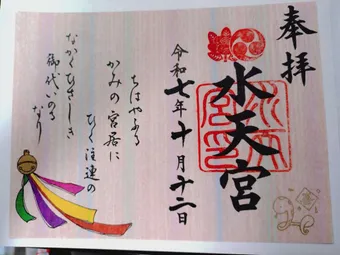 奉拝
水天宮
令和七年十月十二日
ちはやふる
かみの宮居に
ひく注連の
ながくひさしき
御代いのる
なり